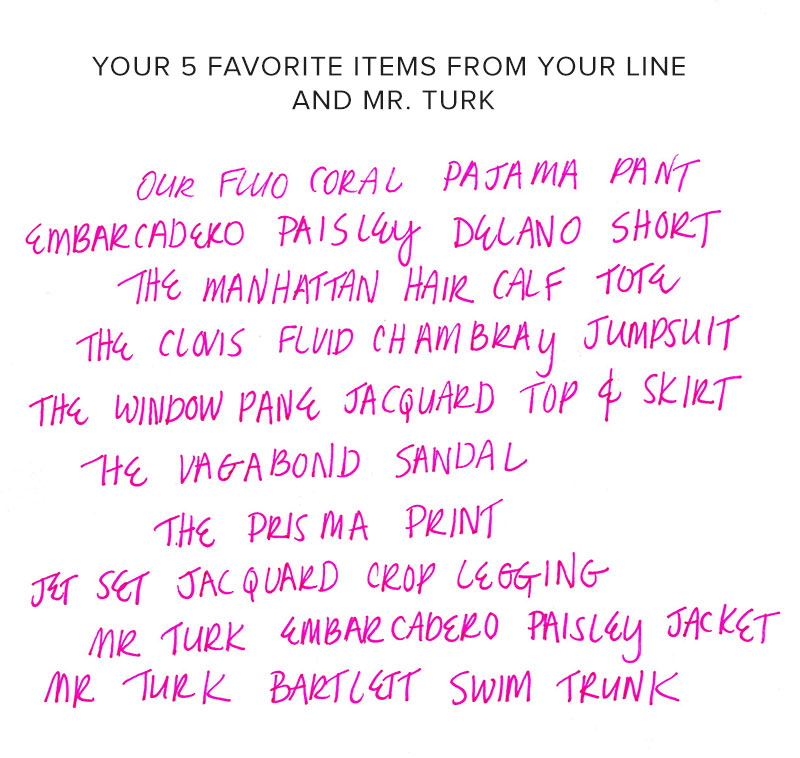 YOUR 5 FAVORITE ITEMS FROM YOUR LINE
AND MR. TURK
OUR FLUO CORAL PAJAMA PANT
EMBARCADERO PAISLEY DELANO SHORT
THE MANHATTAN HAIR CALF TOTE
THE CLOVIS FLUID CHAMBRAY JUMPSUIT
THE WINDOW PANE JACQUARD TOP & SKIRT
THE VAGABOND SANDAL
THE PRISMA PRINT
JET SET JACQUARD CROP LEGGING
MR TURK EMBARCADERO PAISLEY JACKET
MR TURK BARTLETT SWIM TRUNK